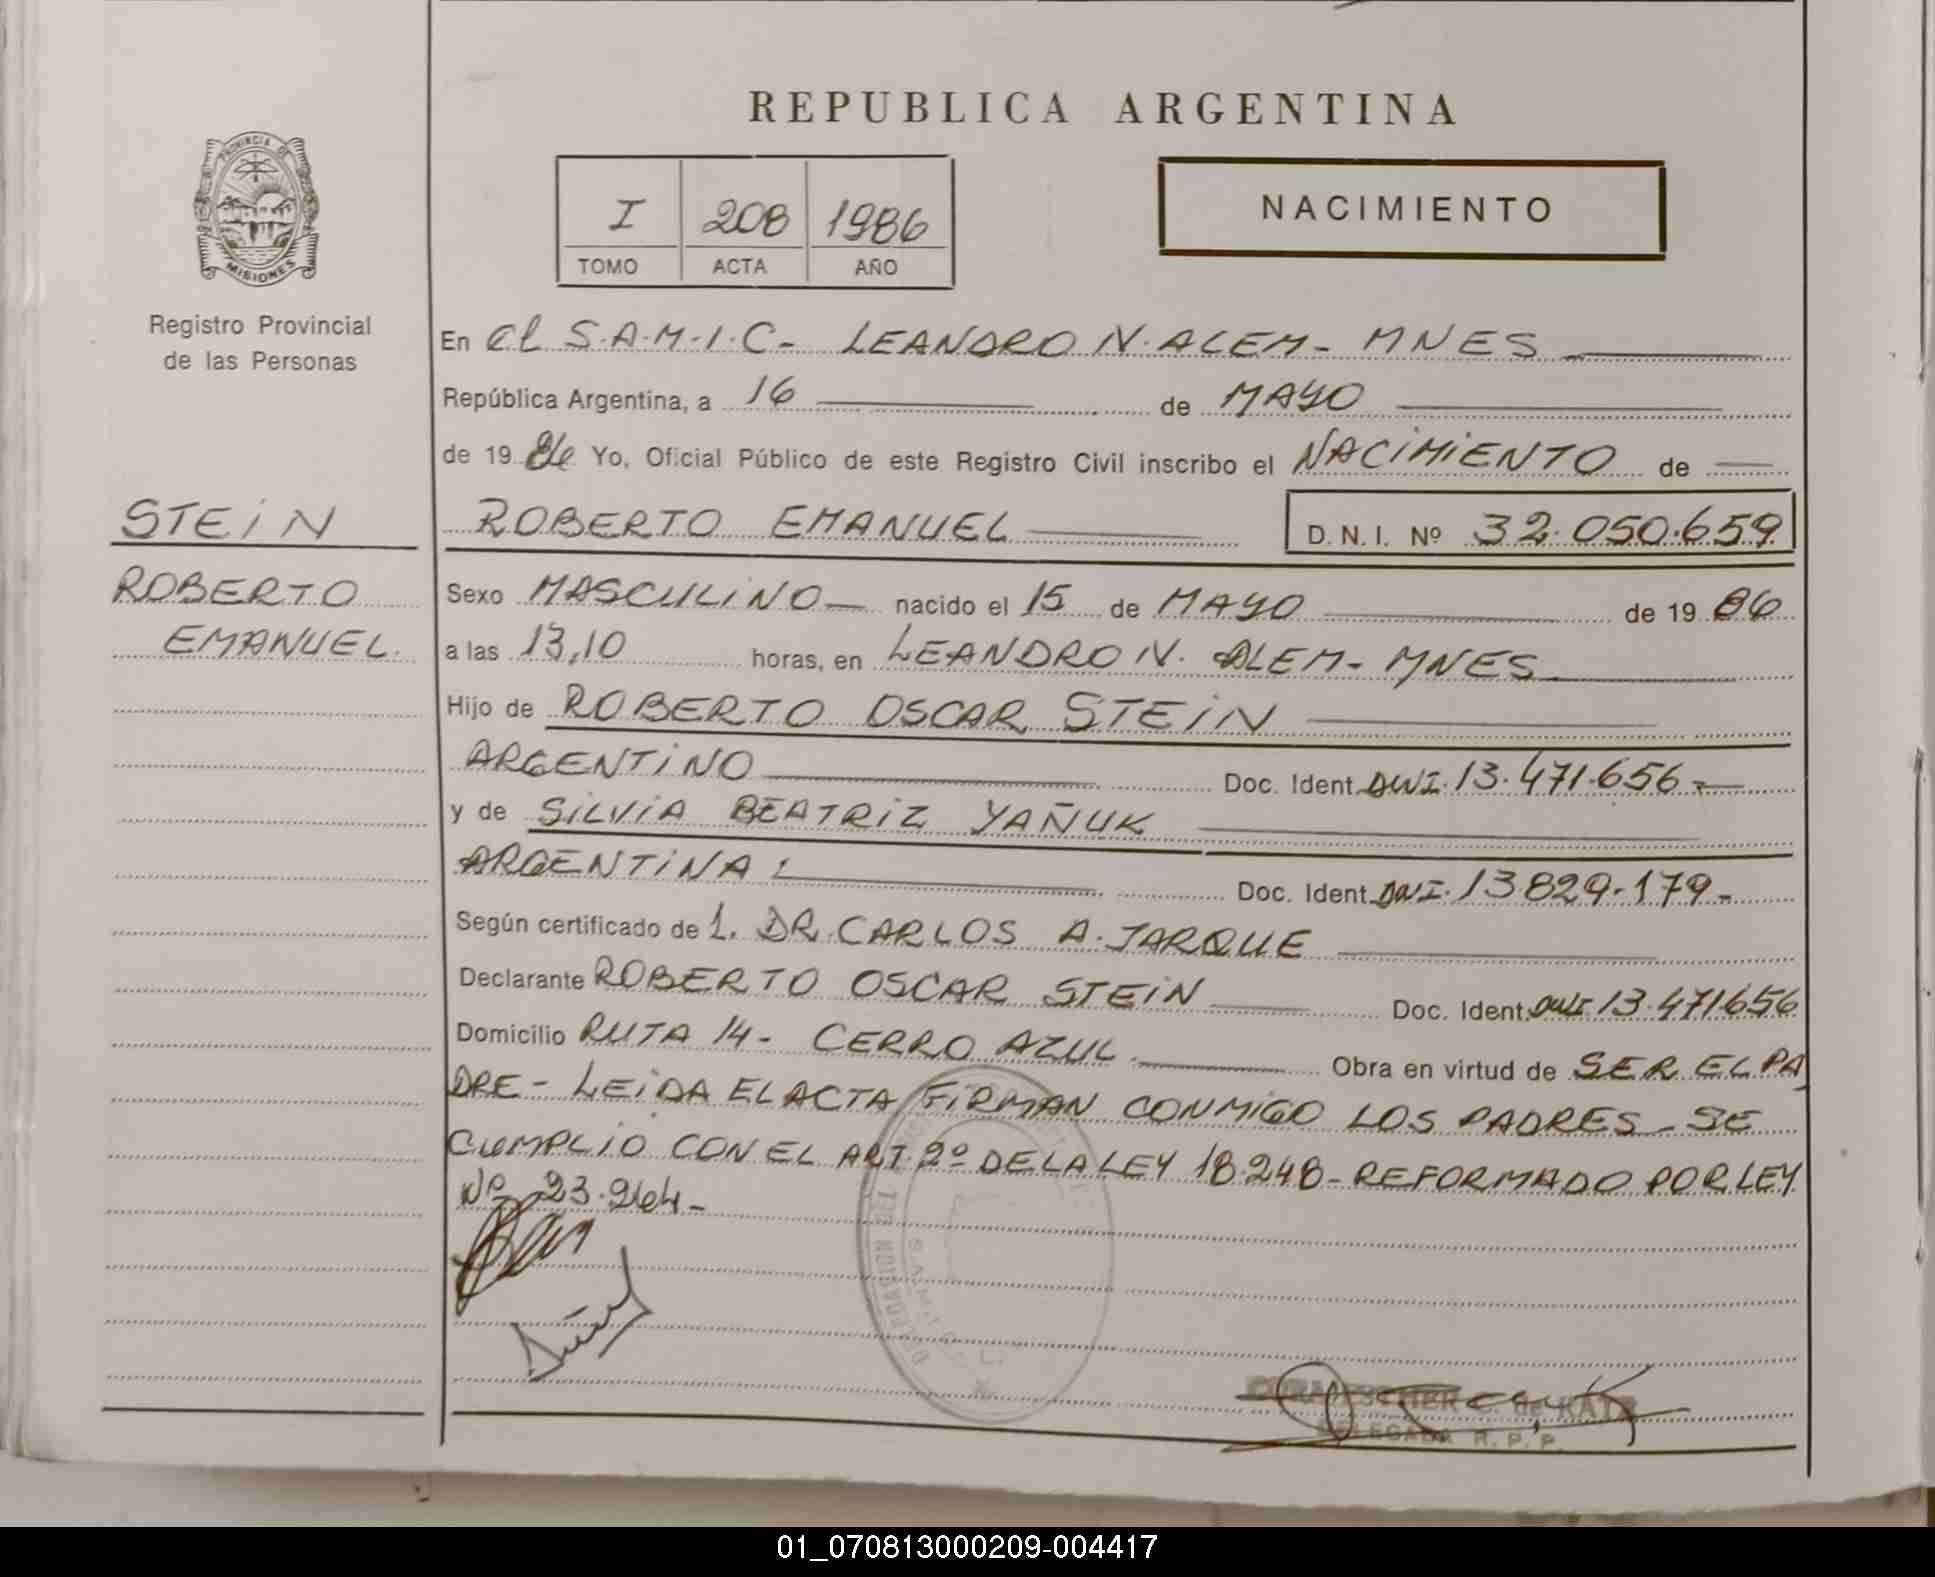 REPUBLICA ARGENTINA
PROVINCIA DE
MISIONES
Registro Provincial
de las Personas
I 208 1986
TOMO ACTA AÑO
NACIMIENTO
En el S.A.M.I.C- LEANDRO N. ALEM- MNES
República Argentina, a 16 de MAYO
de 19 86 Yo, Oficial Público de este Registro Civil inscribo el NACIMIENTO de
STEIN
ROBERTO EMANUEL D.N.I. Nº 32.050.659
ROBERTO
EMANUEL.
Sexo MASCULINO nacido el 15 de MAYO de 19 86
a las 13,10 horas, en LEANDRO N. ALEM- MNES
Hijo de ROBERTO OSCAR STEIN
ARGENTINO Doc. Ident. DNI. 13.471.656-
y de SILVIA BEATRIZ YAÑUK
ARGENTINA: Doc. Ident. DNI. 13829-179-
Según certificado de 1. DR. CARLOS A. JARQUE
Declarante ROBERTO OSCAR STEIN Doc. Ident. DNI 13.471656
Domicilio RUTA 14- CERRO AZUL Obra en virtud de SER EL PA
DRE- LEIDA EL ACTA FIRMAN CONMIGO LOS PADRES- SE
CUMPLIO CON EL ART. 2º DE LA LEY 18.248- REFORMADO POR LEY
Nº 23.264-
DELEGACION DEL
DELEGADA R.P.P.
01_070813000209-004417